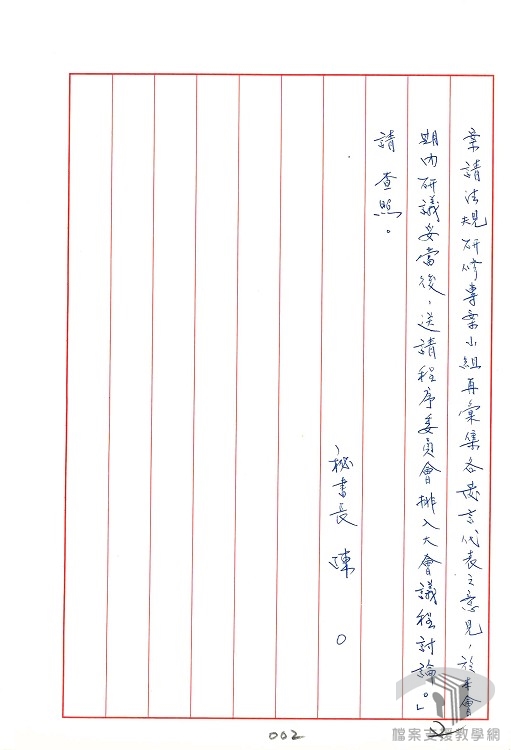 案請法規研修專案小組再彙集各發言代表之意見，於本會
期內研議妥當後，送請程序委員會排入大會議程討論。」
請查照。
秘書長 陳 ○
2
002
檔案支援教學網